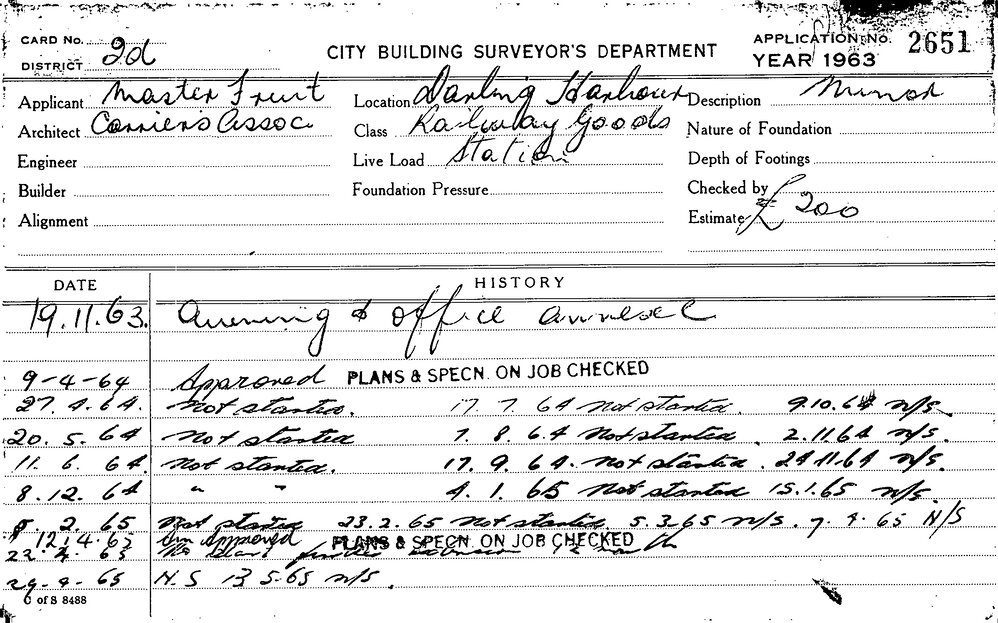 CARD No. 2d
DISTRICT
CITY BUILDING SURVEYOR'S DEPARTMENT
APPLICATION No. 2651
YEAR 1963
Applicant Master Fruit
Location Darling Harbour
Description Minor
Architect Carriers Assoc.
Class Railway Goods
Nature of Foundation
Engineer
Live Load Station
Depth of Footings
Builder
Foundation Pressure
Checked by
Alignment
Estimate £ 200
DATE
HISTORY
19.11.63. Awning & office annexe
9-4-64 Approved PLANS & SPECN. ON JOB CHECKED
27.4.64. Not started. 17.7.64 Not started. 9.10.64 N/S.
20.5.64 Not started 7.8.64 Not started. 2.11.64 N/S.
11.6.64. Not started. 17.9.64. Not started. 24.11.64 N/S.
8.12.64 " " 4.1.65 Not started 15.1.65 N/S.
2.65 Not started 23.2.65 Not started. 5.3.65 N/S. 7.4.65 N/S
12.4.65 Approved PLANS & SPECN. ON JOB CHECKED
29-4-65 N.S 13.5.65 N/S.
C of S 8488